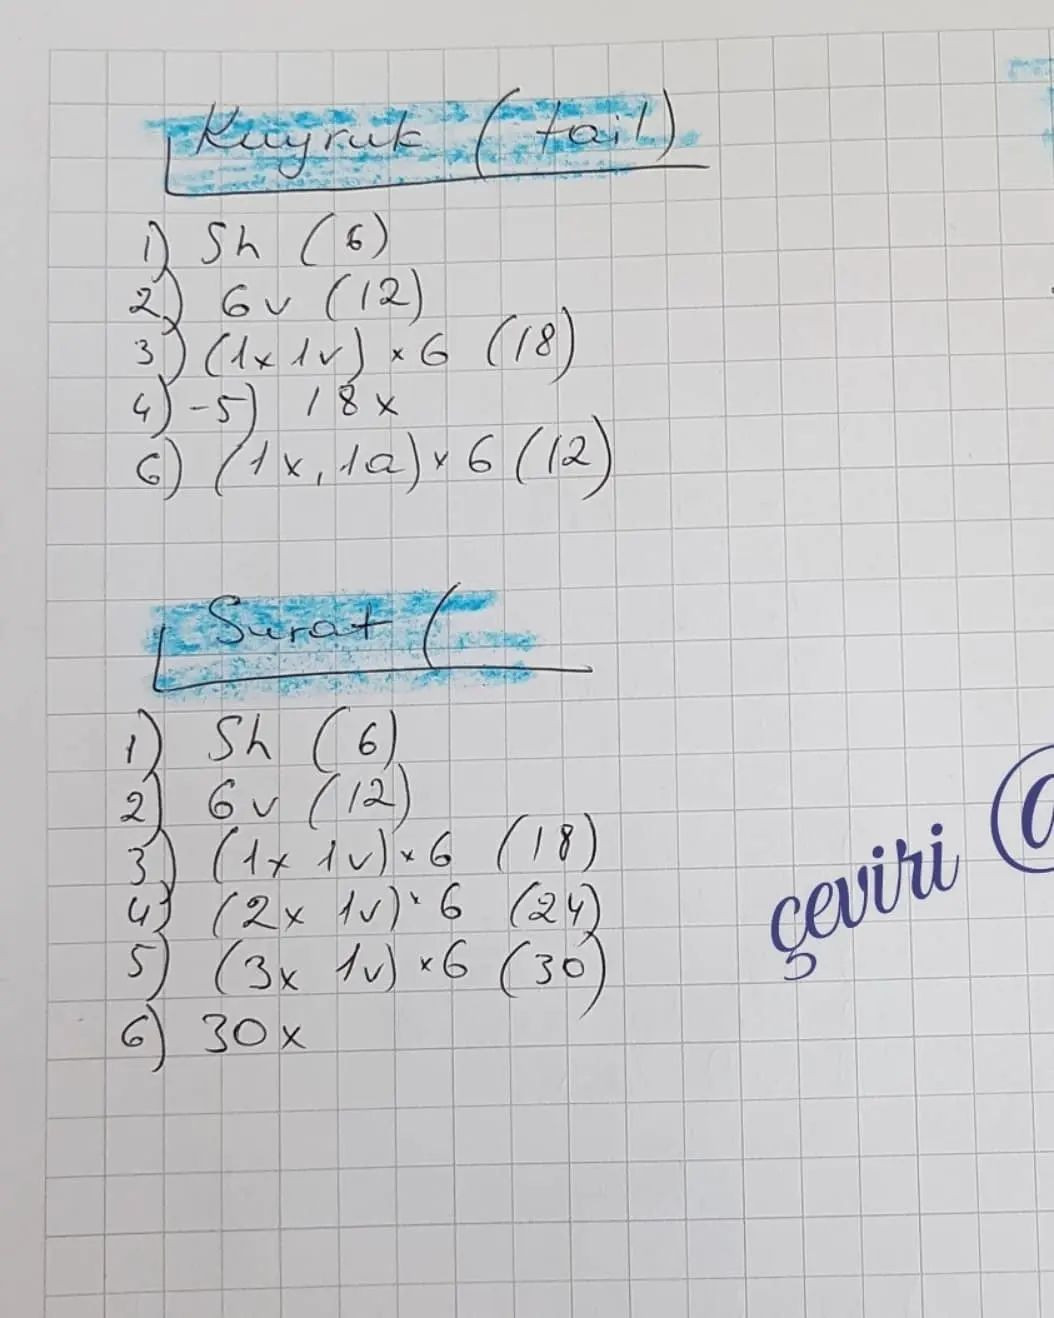 Kuyruk (tail)
1) Sh (6)
2) 6v (12)
3) (1x 1v) × 6 (18)
4)-5) 18x
6) (1x, 1a) × 6 (12)
Surat (
1) Sh (6)
2) 6v (12)
3) (1x 1v) × 6 (18)
4) (2x 1v) × 6 (24)
5) (3x 1v) × 6 (30)
6) 30x
çeviri @